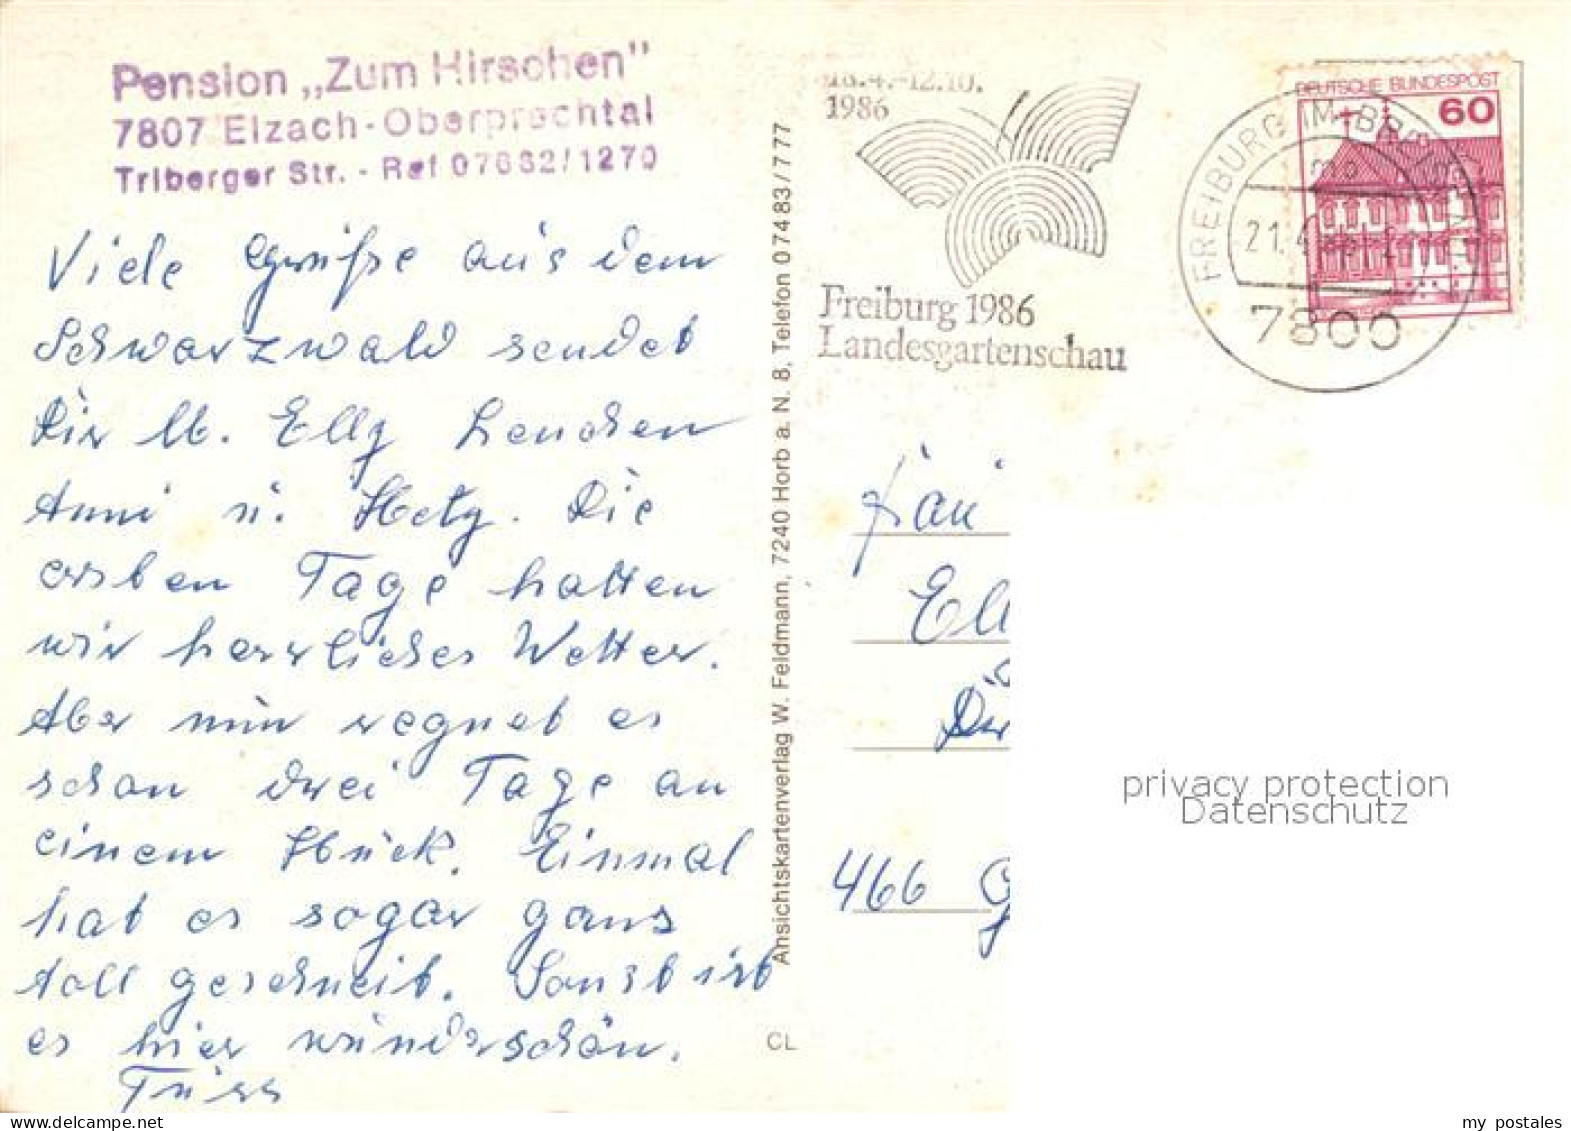 Pension „Zum Hirschen"
7807 Elzach-Oberprechtal
Triberger Str. - Ruf 07682/1270
Viele Grüße aus dem
Schwarzwald sendet
Dir u. Elly Lenchen
Anni u. Hety. Die
ersten Tage hatten
wir herrliches Wetter.
Aber nun regnet es
schon drei Tage an
einem Stück. Einmal
hat es sogar ganz
toll geschneit. Sonst ist
es hier wunderschön.
Tüss
Ansichtskartenverlag W. Feldmann, 7240 Horb a. N. 8, Telefon 07483/777
CL
18.4.-12.10.
1986
Freiburg 1986
Landesgartenschau
FREIBURG IM BREISGAU
21.4.
7800
DEUTSCHE BUNDESPOST
60
Frau
Ell
466 G
privacy protection
Datenschutz
my postales